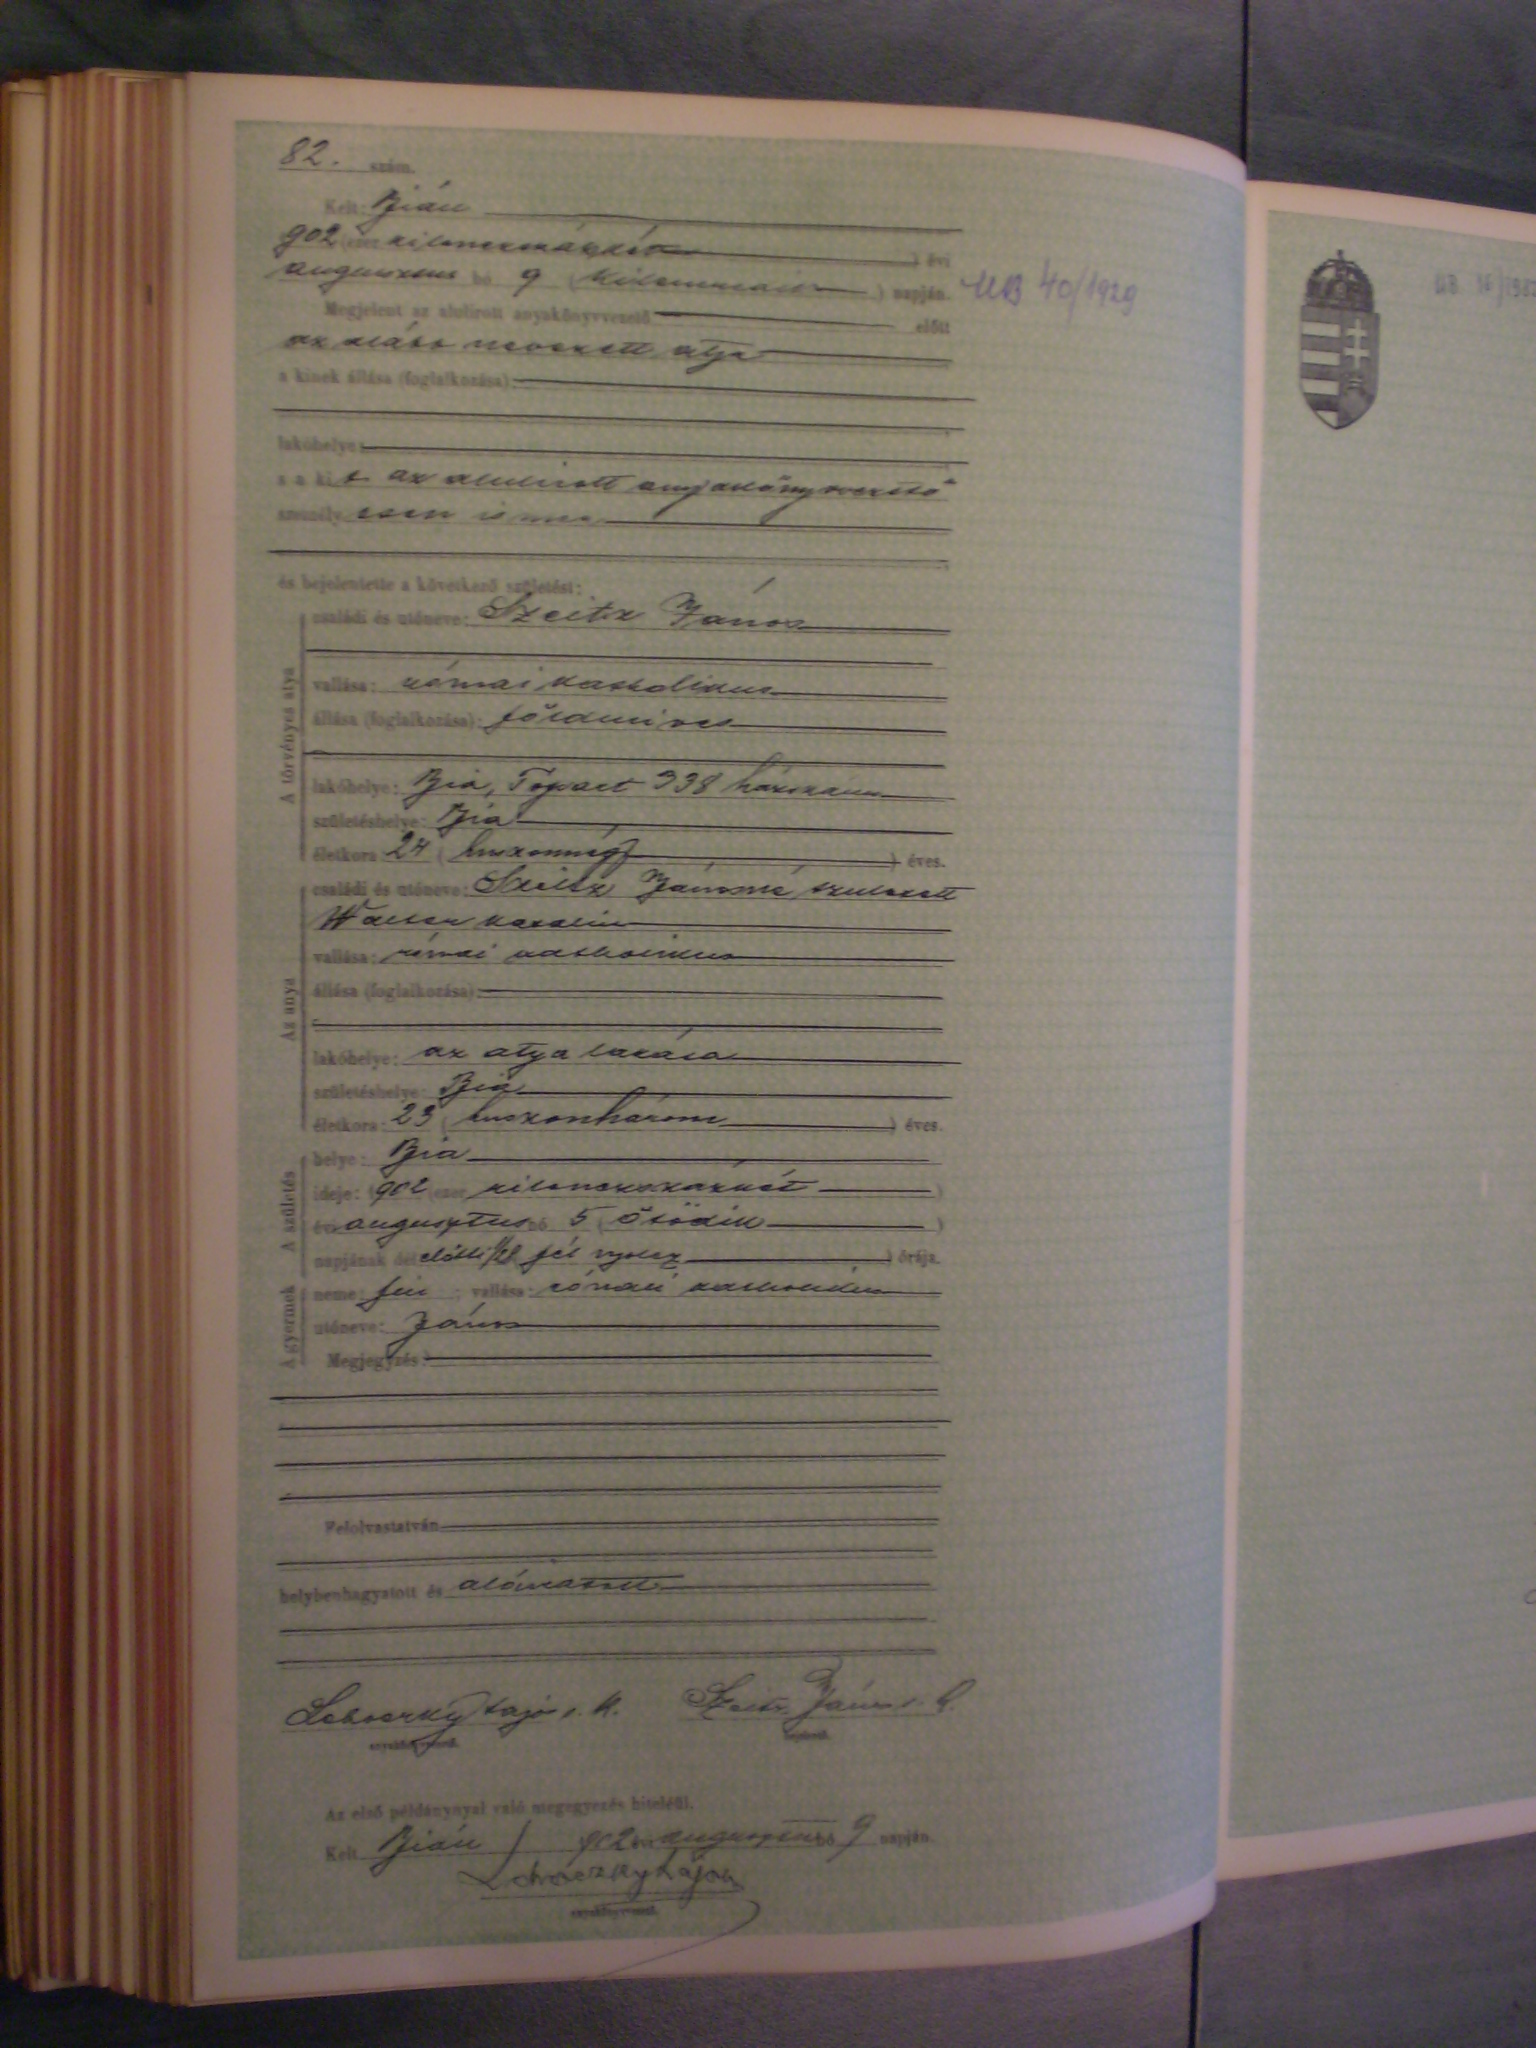 82. szám.
Kelt: Bián
902 (ezer kilenczszázkét) évi
augusztus hó 9 (kilenczedik) napján. UB 40/1929
Megjelent az alulirott anyakönyvvezető előtt
az alább nevezett atya
a kinek állása (foglalkozása):
lakóhelye:
s a kit az alulirott anyakönyvvezető
személyesen ismer
és bejelentette a következő születést:
A törvényes atya
családi és utóneve: Szeitz János
vallása: római katholikus
állása (foglalkozása): földmives
lakóhelye: Bia, Tópart 338 házszám
születéshelye: Bia
életkora: 24 (huszonnégy) éves.
Az anya
családi és utóneve: Szeitz Jánosné született
Walter Katalin
vallása: római katholikus
állása (foglalkozása):
lakóhelye: az atya lakása
születéshelye: Bia
életkora: 23 (huszonhárom) éves.
A születés
helye: Bia
ideje: 1902 (ezer kilenczszázkét)
évi augusztus hó 5 (ötödik)
napjának délelőtti 1/28 (fél nyolcz) órája.
A gyermek
neme: fiu; vallása: római katholikus
utóneve: János
Megjegyzés:
Felolvastatván
helybenhagyatott és aláiratott
Lehoczky Lajos s. k. Szeitz János s. k.
anyakönyvvezető. bejelentő.
Az első példánynyal való megegyezés hiteléül.
Kelt Bián 902 évi augusztus hó 9 napján
Lehoczky Lajos
anyakönyvvezető.